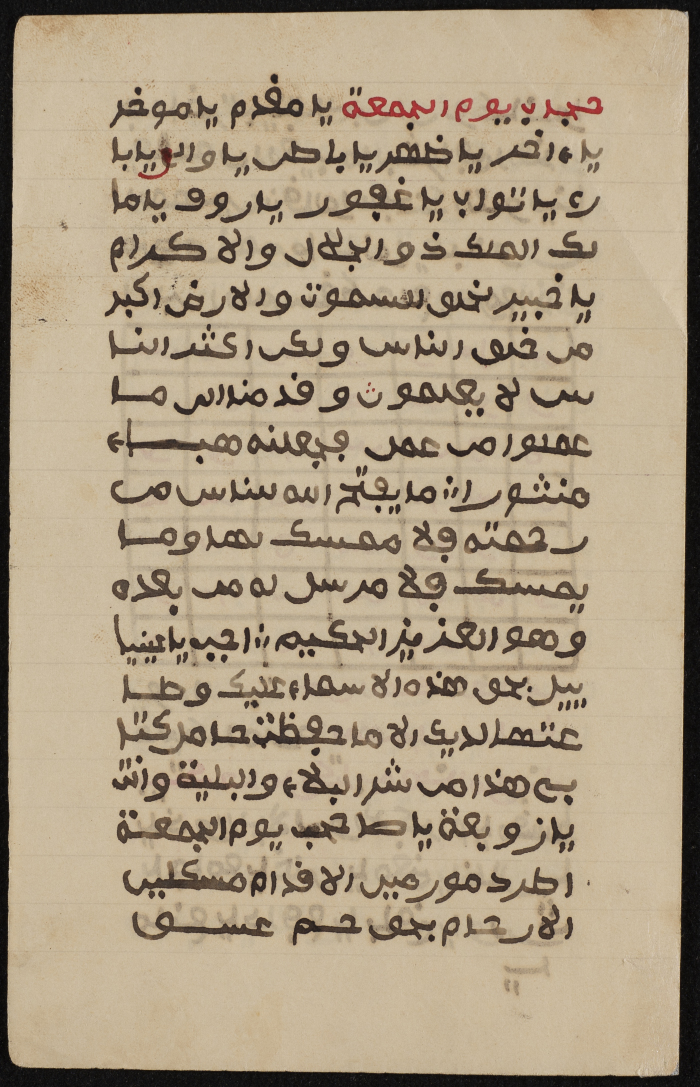 حجاب يوم الجمعة يا مقدم يا موخر
يا ءاخر يا ظهر يا باطن يا والي يا با
ر يا تواب يا غفور يا روف يا ما
لك الملك ذو الجلال والاكرام
يا خبير لخلق السموت والارض اكبر
من خلق الناس ولكن اكثر النا
س لا يعلمون وقدمنا الى ما
عملوا من عمل فجعلنه هباء
منثورا ما يفتح الله للناس من
رحمته فلا ممسك لها وما
يمسك فلا مرسل له من بعده
وهو العزيز الحكيم اجب يا عينيا
ييل بحق هذه الاسماء عليك وطا
عتها لديك الا ما حفظت حامل كتا
بي هذا من شر البلاء والبلية وانت
يا زوبعة يا صاحب يوم الجمعة
اطرد الاقدام
الارحام بحق حم عسق